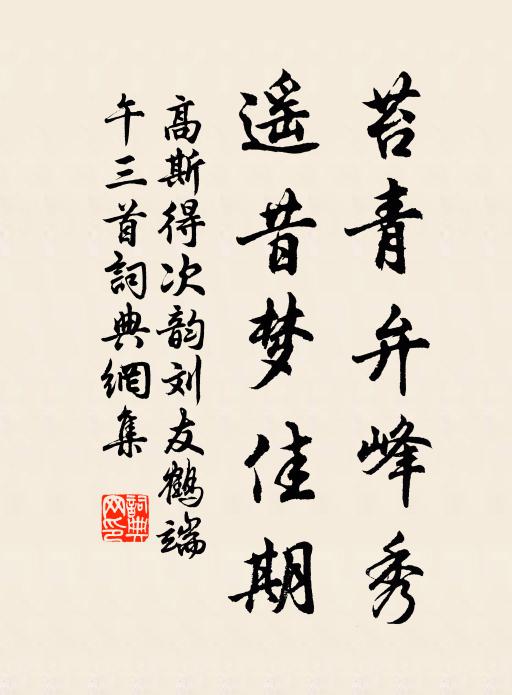 苕青弁峰秀
遥昔梦佳期
高斯得次韵刘友鹤端
午三首詞典網集
詞典
网印